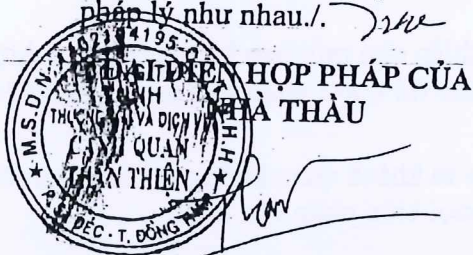 pháp lý như nhau./.
ĐẠI DIỆN HỢP PHÁP CỦA
NHÀ THẦU
M.S.D.N: 4195-C.T.T.N.H.H
THƯƠNG MẠI VÀ DỊCH VỤ
CẢNH QUAN
THÂN THIỆN
P. SA ĐÉC - T. ĐỒNG THÁP